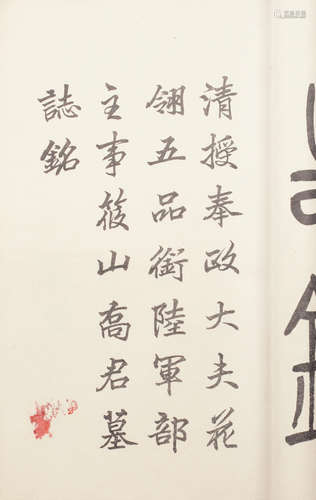 清授奉政大夫花
翎五品銜陸軍部
主事筱山喬君墓
誌銘